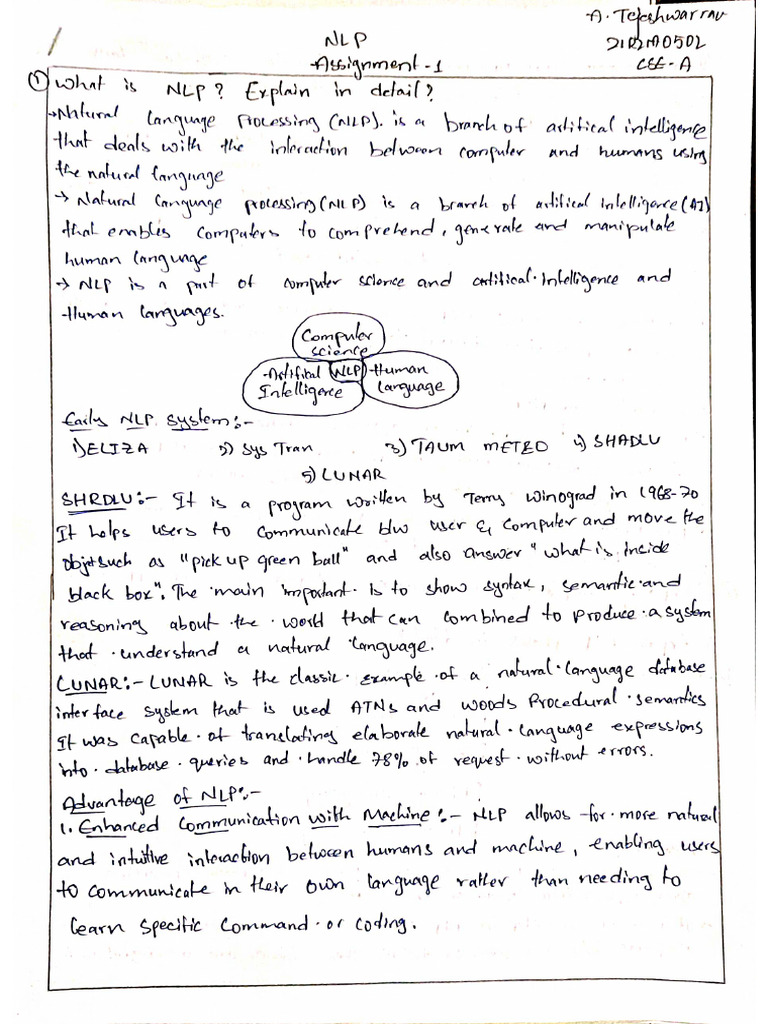 A. Tejeshwar rav
NLP
21R21A0502
Assignment-1
CSE-A
① What is NLP? Explain in detail?
→Natural Language Processing (NLP). is a branch of artifical intelligence
that deals with the interaction between computer and humans using
the natural language
→ Natural Language processing (NLP) is a branch of artifical Intelligence (AI)
that enables computers to comprehend, generate and manipulate
human language
→ NLP is a part of computer science and artifical Intelligence and
Human Languages.
Computer
science
Artifical NLP Human
Intelligence Language
Early NLP system:-
1) ELIZA 2) Sys Tran 3) TAUM METEO 4) SHADLU
5) LUNAR
SHRDLU:- It is a program written by Terry Winograd in 1968-70
It helps users to communicate b/w user & computer and move the
objet such as "pick up green ball" and also answer "what is inside
black box". The main important is to show syntax, semantic and
reasoning about the world that can combined to produce a system
that understand a natural language.
LUNAR:- LUNAR is the classic example of a natural language database
interface system that is used ATNs and woods Procedural semantics
It was capable of translating elaborate natural language expressions
into database queries and handle 78% of request without errors.
Advantage of NLP:-
1. Enhanced Communication with Machine:- NLP allows for more natural
and intuitive interaction between humans and machine, enabling users
to communicate in their own language rather than needing to
learn specific command or coding.